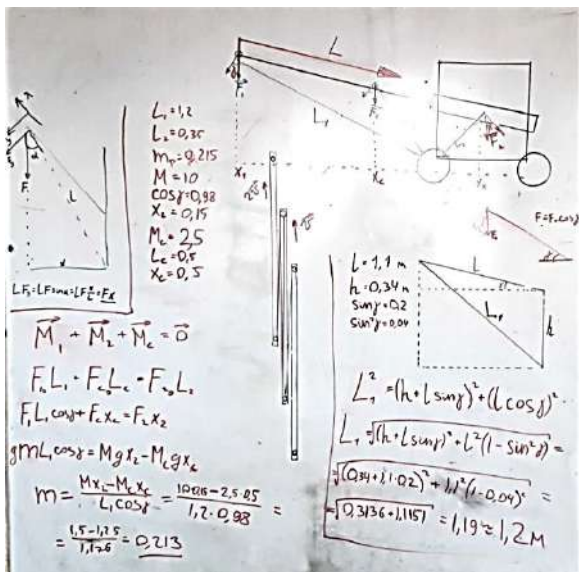 L₁=1,2
L₂=0,35
mₚ=0,215
M=10
cosγ=0,98
x₂=0,15
M_c=2,5
L_c=0,5
x_c=0,5
L
L₁
x₁
x_c
F=F₀cosγ
l=1,1 м
h=0,34 м
sinγ=0,2
sin²γ=0,04
L
L₁
h
M₁ + M₂ + M_c = 0
F₁L₁cosγ+F_cx_c=F₂x₂
gmL₁cosγ=Mgx₂-M_cgx_c
m = (Mx₂-M_cx_c)/(L₁cosγ) = (10·0,15-2,5·0,5)/(1,2·0,98) =
= (1,5-1,25)/1,176 = 0,213
L₁²=(h+lsinγ)²+(lcosγ)²
L₁=√((h+Lsinγ)²+L²(1-sin²γ)) =
=√((0,34+1,1·0,2)²+1,1²(1-0,04)²) =
=√(0,3136+1,1151) = 1,19≈1,2м